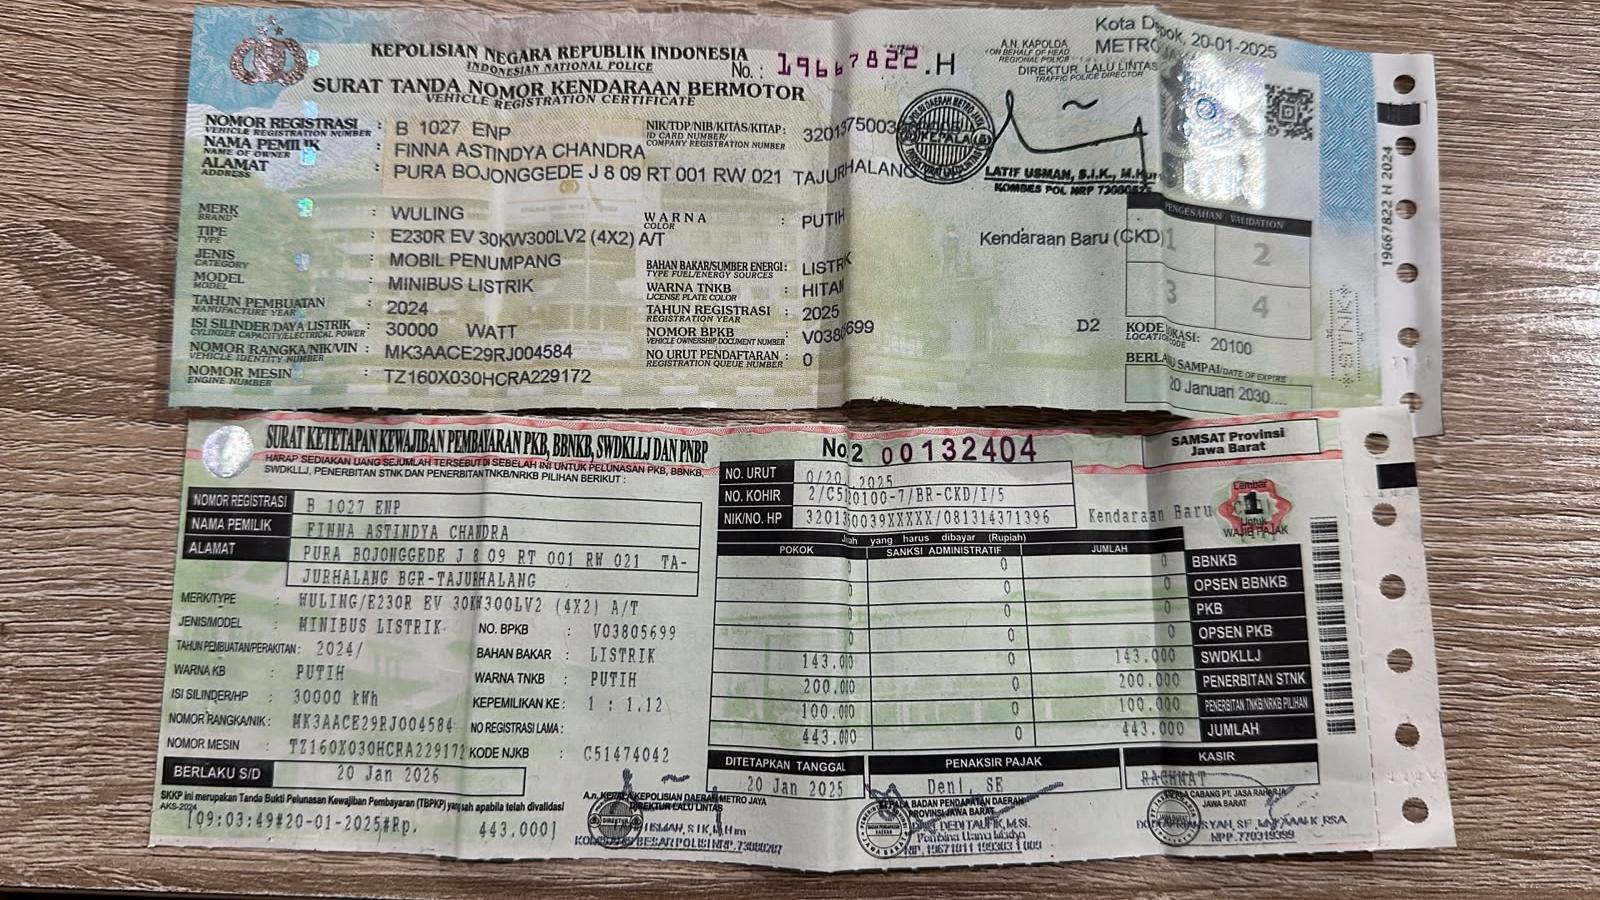 KEPOLISIAN NEGARA REPUBLIK INDONESIA
INDONESIAN NATIONAL POLICE
No. : 19667822 .H
SURAT TANDA NOMOR KENDARAAN BERMOTOR
VEHICLE REGISTRATION CERTIFICATE
Kota Depok, 20-01-2025
A.N. KAPOLDA METRO
ON BEHALF OF HEAD REGIONAL POLICE
DIREKTUR LALU LINTAS
TRAFFIC POLICE DIRECTOR
KEPALA
LATIF USMAN, S.I.K., M.Hum
KOMBES POL NRP
NOMOR REGISTRASI : B 1027 ENP
VEHICLE REGISTRATION NUMBER
NAMA PEMILIK : FINNA ASTINDYA CHANDRA
NAME OF OWNER
ALAMAT : PURA BOJONGGEDE J 8 09 RT 001 RW 021 TAJURHALANG
ADDRESS
NIK/TDP/NIB/KITAS/KITAP:
ID CARD NUMBER/
COMPANY REGISTRATION NUMBER
MERK : WULING
BRAND
TIPE : E230R EV 30KW300LV2 (4X2) A/T
TYPE
JENIS : MOBIL PENUMPANG
CATEGORY
MODEL : MINIBUS LISTRIK
MODEL
TAHUN PEMBUATAN : 2024
MANUFACTURE YEAR
ISI SILINDER/DAYA LISTRIK : 30000 WATT
CYLINDER CAPACITY/ELECTRICAL POWER
NOMOR RANGKA/NIK/VIN : MK3AACE29RJ004584
VEHICLE IDENTITY NUMBER
NOMOR MESIN : TZ160X030HCRA229172
ENGINE NUMBER
WARNA : PUTIH
COLOR
BAHAN BAKAR/SUMBER ENERGI : LISTRIK
TYPE FUEL/ENERGY SOURCES
WARNA TNKB : HITAM
LICENSE PLATE COLOR
TAHUN REGISTRASI : 2025
REGISTRATION YEAR
NOMOR BPKB : V03805699
VEHICLE OWNERSHIP DOCUMENT NUMBER
NO URUT PENDAFTARAN : 0
REGISTRATION QUEUE NUMBER
Kendaraan Baru (CKD)
D2
PENGESAHAN / VALIDATION
1 2
3 4
KODE LOKASI: 20100
LOCATION CODE
BERLAKU SAMPAI/DATE OF EXPIRE
20 Januari 2030....
*STNK*
19667822 H 2024
SURAT KETETAPAN KEWAJIBAN PEMBAYARAN PKB, BBNKB, SWDKLLJ DAN PNBP
HARAP SEDIAKAN UANG SEJUMLAH TERSEBUT DI SEBELAH INI UNTUK PELUNASAN PKB, BBNKB,
SWDKLLJ, PENERBITAN STNK DAN PENERBITAN TNKB/NRKB PILIHAN BERIKUT :
No 2 00132404
SAMSAT Provinsi
Jawa Barat
NO. URUT
NO. KOHIR
NIK/NO. HP
Kendaraan Baru
Lembar
1
Untuk
WAJIB PAJAK
NOMOR REGISTRASI B 1027 ENP
NAMA PEMILIK FINNA ASTINDYA CHANDRA
ALAMAT PURA BOJONGGEDE J 8 09 RT 001 RW 021 TA-
JURHALANG BGR-TAJURHALANG
MERK/TYPE : WULING/E230R EV 30KW300LV2 (4X2) A/T
JENIS/MODEL : MINIBUS LISTRIK
TAHUN PEMBUATAN/PERAKITAN : 2024/
WARNA KB : PUTIH
ISI SILINDER/HP : 30000 kWh
NOMOR RANGKA/NIK : MK3AACE29RJ004584
NOMOR MESIN : TZ160X030HCRA229172
NO. BPKB : V03805699
BAHAN BAKAR : LISTRIK
WARNA TNKB : PUTIH
KEPEMILIKAN KE : 1 : 1.12
NO REGISTRASI LAMA :
KODE NJKB : C51474042
BERLAKU S/D 20 Jan 2026
SKKP ini merupakan Tanda Bukti Pelunasan Kewajiban Pembayaran (TBPKP) yang sah apabila telah divalidasi
AKS-2024
[09:03:49#20-01-2025#Rp. 443.000]
yang harus dibayar (Rupiah)
POKOK SANKSI ADMINISTRATIF JUMLAH
0 0 0 BBNKB
0 0 0 OPSEN BBNKB
0 0 0 PKB
0 0 0 OPSEN PKB
143.000 0 143.000 SWDKLLJ
200.000 0 200.000 PENERBITAN STNK
100.000 0 100.000 PENERBITAN TNKB/NRKB PILIHAN
443.000 0 443.000 JUMLAH
DITETAPKAN TANGGAL PENAKSIR PAJAK KASIR
20 Jan 2025 Deni, SE RACHMAT
A.n. KEPALA KEPOLISIAN DAERAH METRO JAYA
DIREKTUR LALU LINTAS
KEPALA BADAN PENDAPATAN DAERAH
PROVINSI JAWA BARAT
DEDI TAUFIK, M.Si.
Pembina Utama Madya
KEPALA CABANG PT. JASA RAHARJA
JAWA BARAT